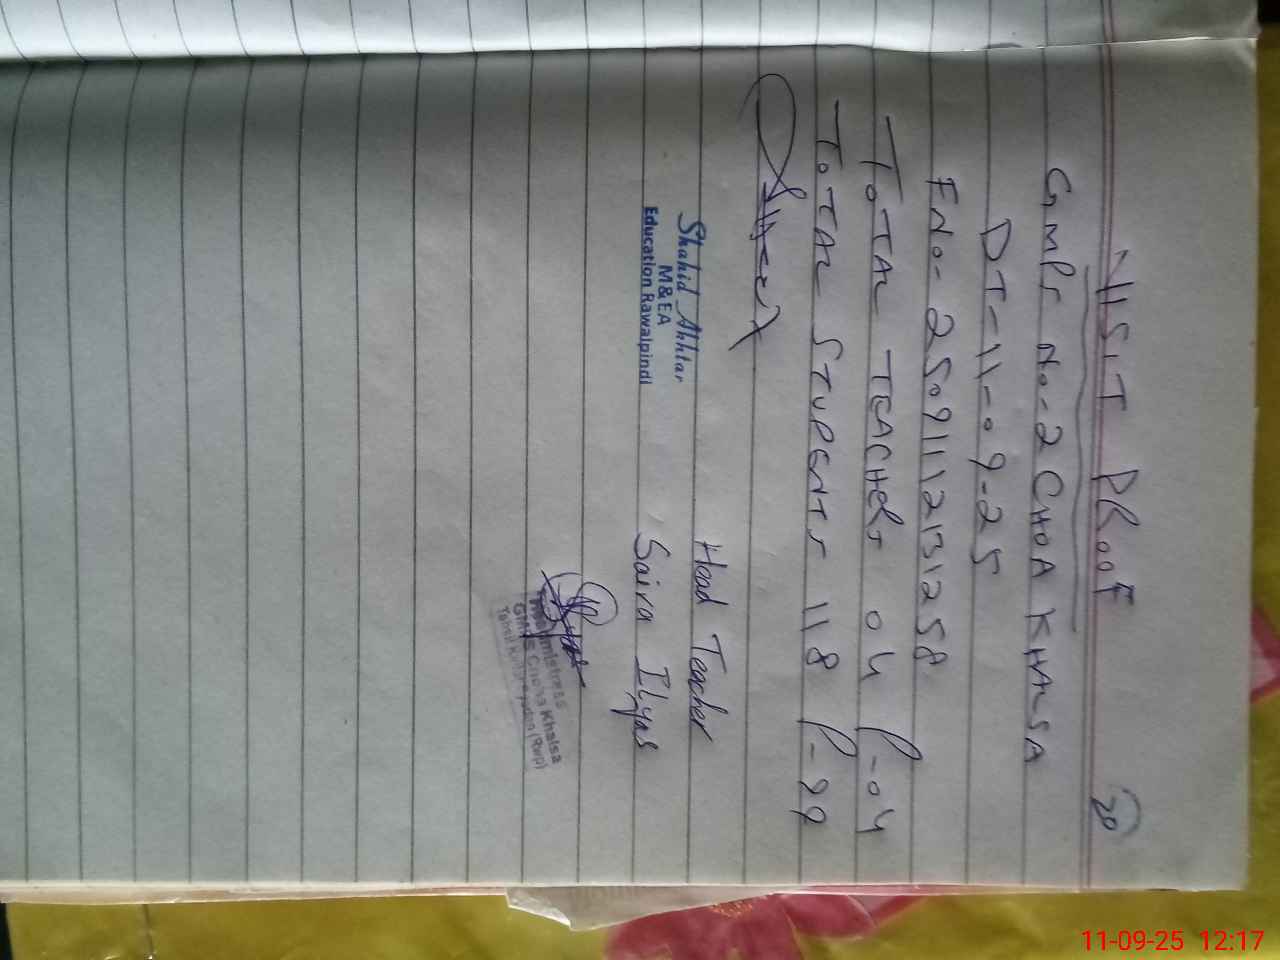 VISIT PROOF
20
GMPS NO-2 CHOA KHALSA
DT-11-09-25
FNO-25091112131258
TOTAL TEACHERS 04 P-04
TOTAL STUDENTS 118 P-99
Shahid Akhtar
M & EA
Education Rawalpindi
Head Teacher
Saira Ilyas
Headmistress
GMPS Choha Khalsa
Tehsil Kallar Syedan (Rwp)
11-09-25 12:17